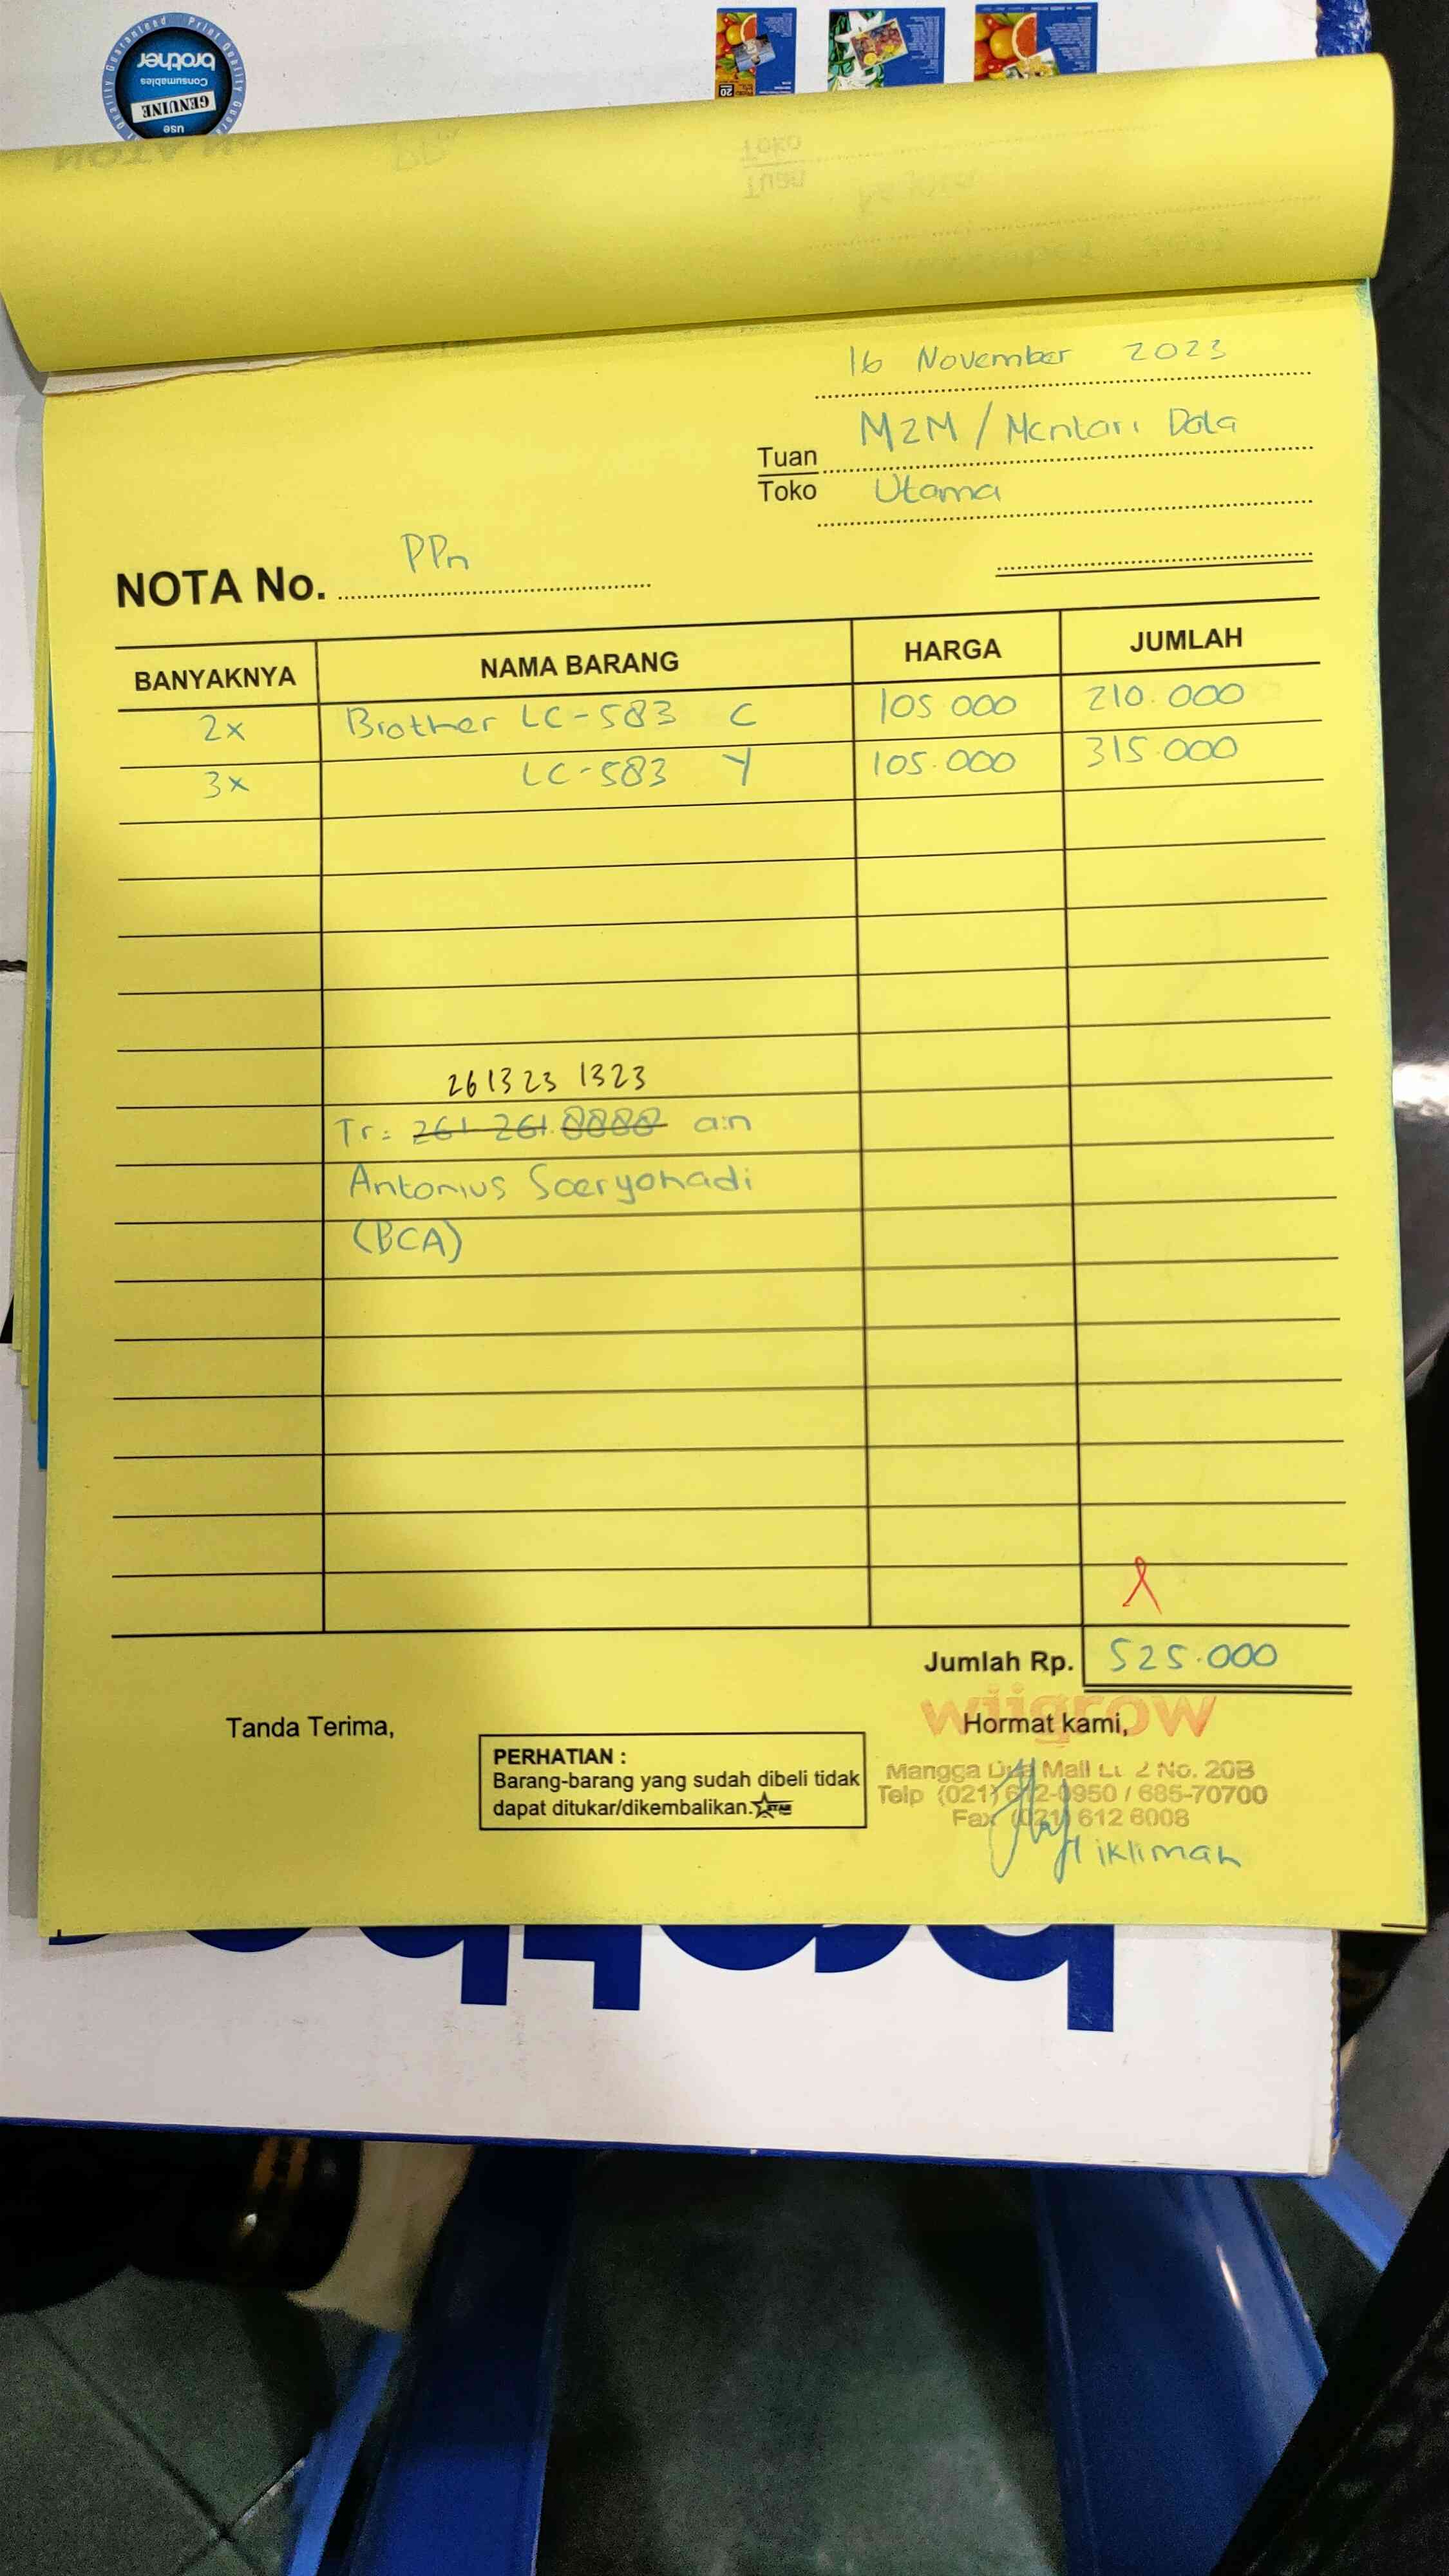 Print Quality Guaranteed
brother
Consumables
GENUINE
use
16 November 2023
Tuan M2M / Mentari Data
Toko Utama
NOTA No. PPn
BANYAKNYA NAMA BARANG HARGA JUMLAH
2x Brother LC-583 C 105 000 210.000
3x LC-583 Y 105.000 315.000
261323 1323
Tr: 261 261.8888 a.n
Antonius Soeryohadi
(BCA)
Jumlah Rp. 525.000
wiigrow
Tanda Terima, Hormat kami,
PERHATIAN :
Barang-barang yang sudah dibeli tidak
dapat ditukar/dikembalikan.
Mangga Dua Mall Lt 2 No. 20B
Telp (021) 612-0950 / 685-70700
Fax (021) 612 6008
iklimah